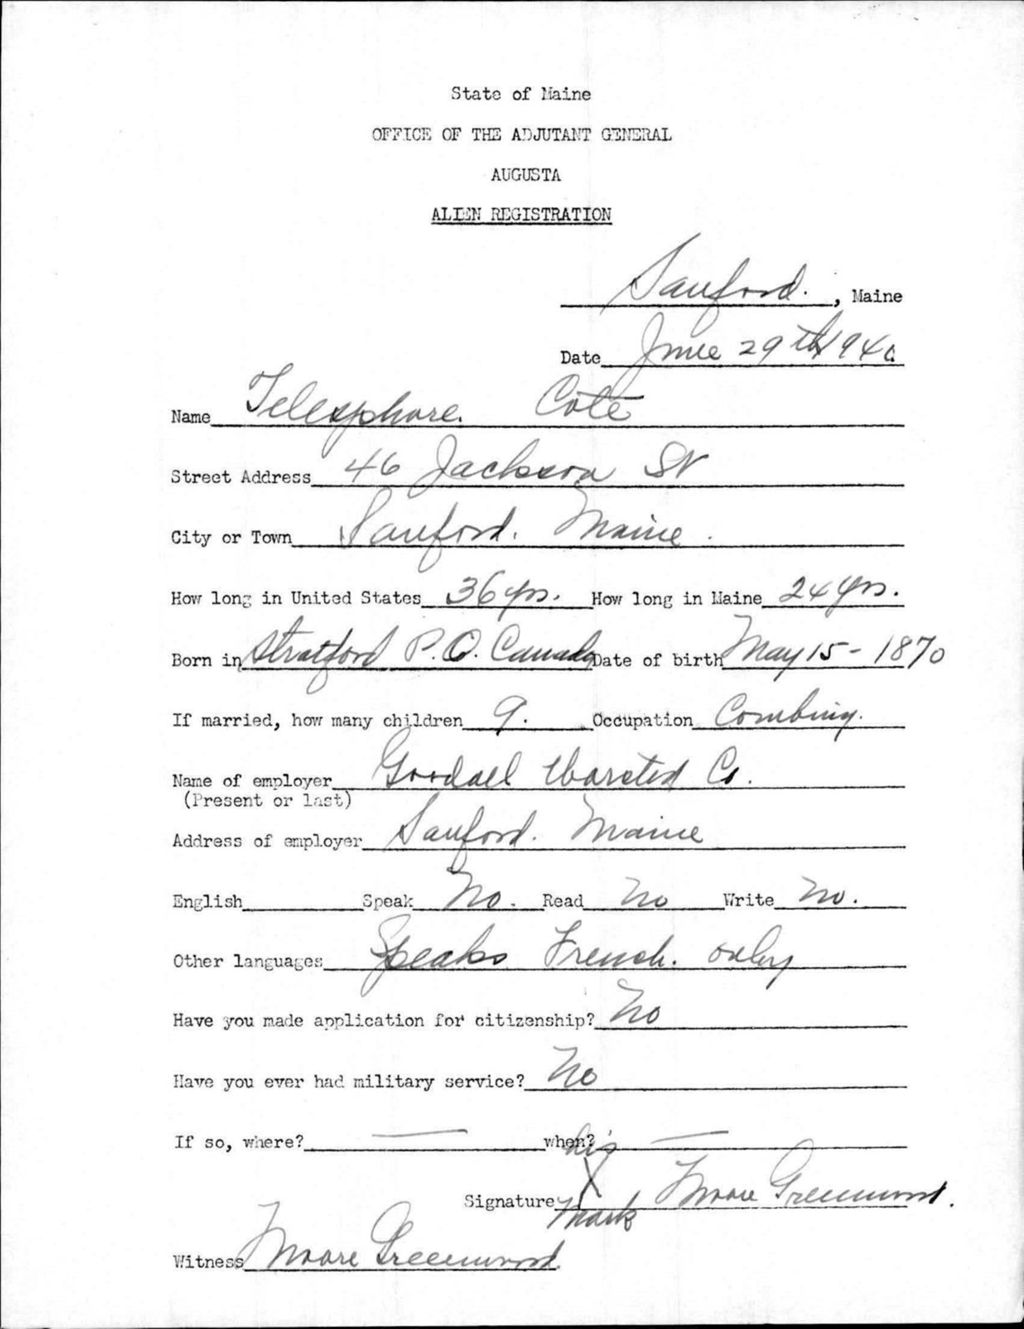 State of Maine
OFFICE OF THE ADJUTANT GENERAL
AUGUSTA
ALIEN REGISTRATION
Sanford. , Maine
Date June 29th 1940
Name Telesphore. Cote
Street Address 46 Jackson St
City or Town Sanford. Maine.
How long in United States 36 yrs. How long in Maine 24 yrs.
Born in Stratford P.Q. Canada Date of birth May 15 - 1870
If married, how many children 9. Occupation Combing.
Name of employer Goodall Worsted Co.
(Present or last)
Address of employer Sanford. Maine
English Speak No. Read No Write No.
Other languages Speaks French. only
Have you made application for citizenship? No
Have you ever had military service? No
If so, where? — when? —
his
Signature X Moore Greenwood.
mark
Witness Moore Greenwood